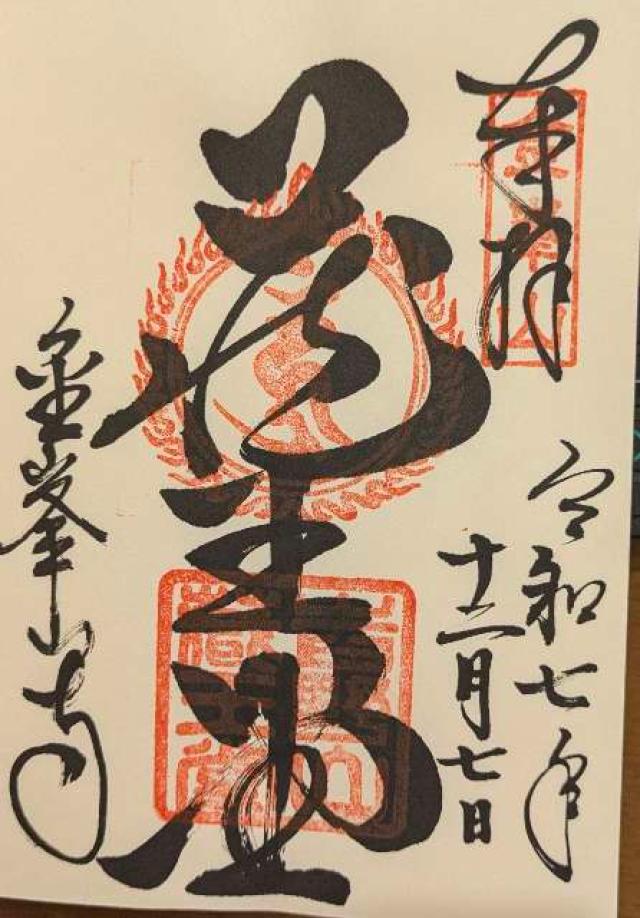 奉拝
令和七年
十二月七日
蔵王堂
金峯山寺